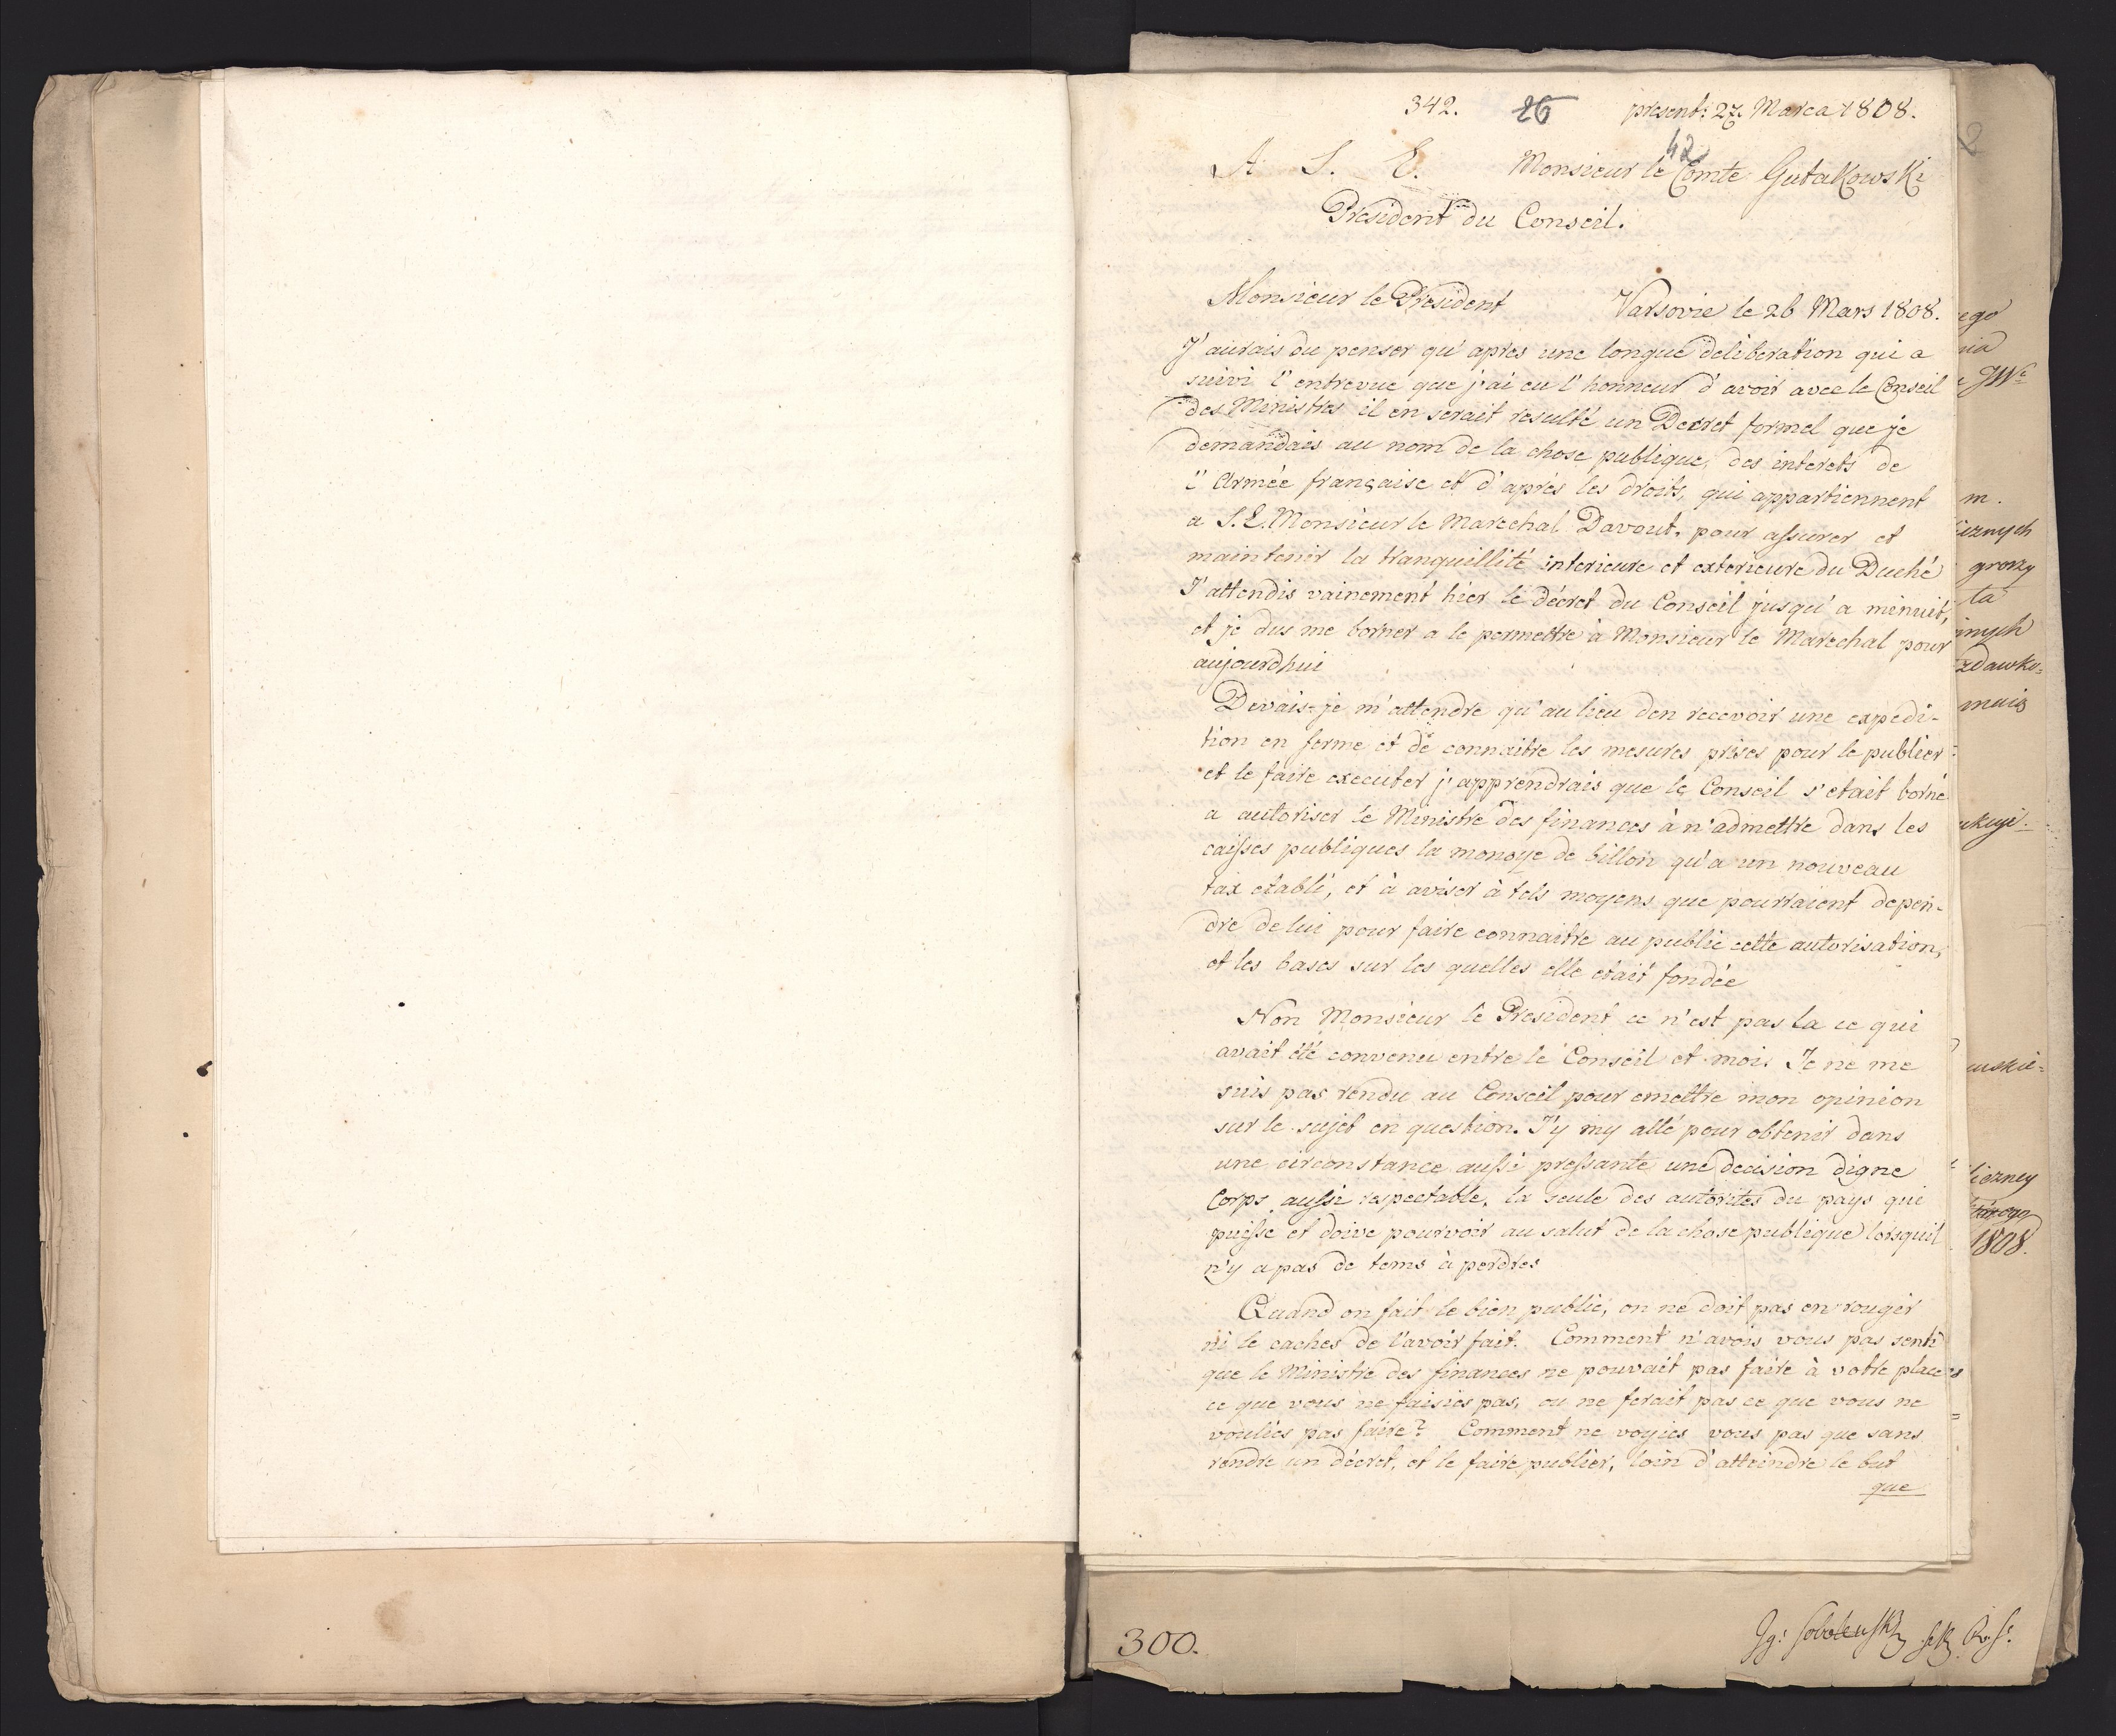 342. 26 present: 27. Marca 1808.
42
A. S. E. Monsieur le Comte Gutakowski
President du Conseil.
Monsieur le President Varsovie le 26 Mars 1808.
J'aurais du penser qu'apres une longue deliberation qui a
suivi l'entrevue que j'ai eu l'honneur d'avoir avec le Conseil
des Ministres il en serait resulté un Decret formel que je
demandais au nom de la chose publique, des interets de
l'Armée française et d'aprés les droits, qui appartiennent
a S. E. Monsieur le Marechal Davout, pour assurer et
maintenir la tranquillité interieure et exterieure du Duché
J'attendis vainement hier le décret du Conseil jusqu'a minuit,
et je dus me borner a le permettre à Monsieur le Marechal pour
aujourdhui
Devais-je m'attendre qu'au lieu den recevoir une expedi-
tion en forme et de connaitre les mesures prises pour le publier
et le faire executer j'apprendrais que le Conseil s'etait borné
a autoriser le Ministre des finances à n'admettre dans les
caisses publiques la monoye de billon qu'a un nouveau
tax etabli, et à aviser à tels moyens que pourraient depen-
dre de lui pour faire connaitre au public cette autorisation,
et les bases sur les quelles elle etait fondée
Non Monsieur le President ce n'est pas la ce qui
avait été convenu entre le Conseil et moi. Je ne me
suis pas rendu au Conseil pour emettre mon opinion
sur le sujet en question. J'y my allé pour obtenir dans
une circonstance aussi pressante une decision digne
Corps aussi respectable, la seule des autorités du pays qui
puisse et doive pourvoir au salut de la chose publique lorsquil
n'y a pas de tems à perdres
Quand on fait le bien public, on ne doit pas en rougir
ni le caches de l'avoir fait. Comment n'avois vous pas senti
que le Ministre des finances ne pouvait pas faire à votre place
ce que vous ne faisies pas, ou ne ferait pas ce que vous ne
voulies pas faire? Comment ne voyies vous pas que sans
rendre un décret, et le faire publier, loin d'attreindre le but
que
ego
nia
m.
grozy
ta
zdawko=
muis
1808.
300.
Ig: Sobolewski